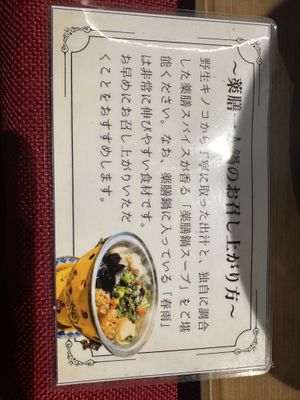 ~薬膳一人鍋のお召し上がり方~
野生キノコから丁寧に取った出汁と、独自に調合
した薬膳スパイスが香る「薬膳鍋スープ」をご堪
能ください。なお、薬膳鍋に入っている「春雨」
は非常に伸びやすい食材です。
お早めにお召し上がりいただ
くことをおすすめします。